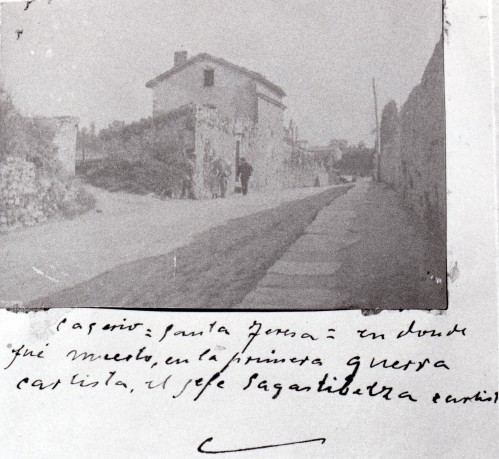 Caserio = Santa Teresa = en donde
fué muerto, en la primera guerra
carlista, el jefe Sagastibelza carlist